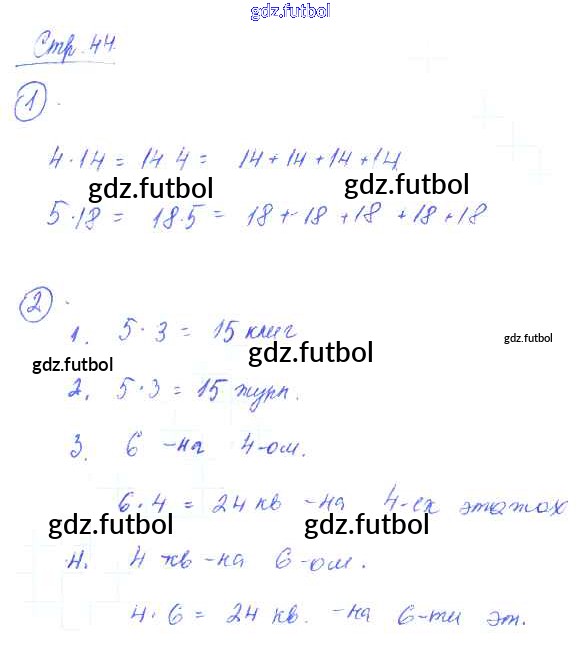 gdz.futbol
Стр. 44.
1.
4·14 = 14 4 = 14 + 14 + 14 + 14
gdz.futbol gdz.futbol
5·18 = 18·5 = 18 + 18 + 18 + 18 + 18
2.
1. 5·3 = 15 книг
gdz.futbol gdz.futbol gdz.futbol
2. 5·3 = 15 журн.
3. 6 - на 4-ом.
6·4 = 24 кв - на 4-ех этажах
gdz.futbol gdz.futbol
4. 4 кв - на 6-ом.
4·6 = 24 кв. - на 6-ти эт.